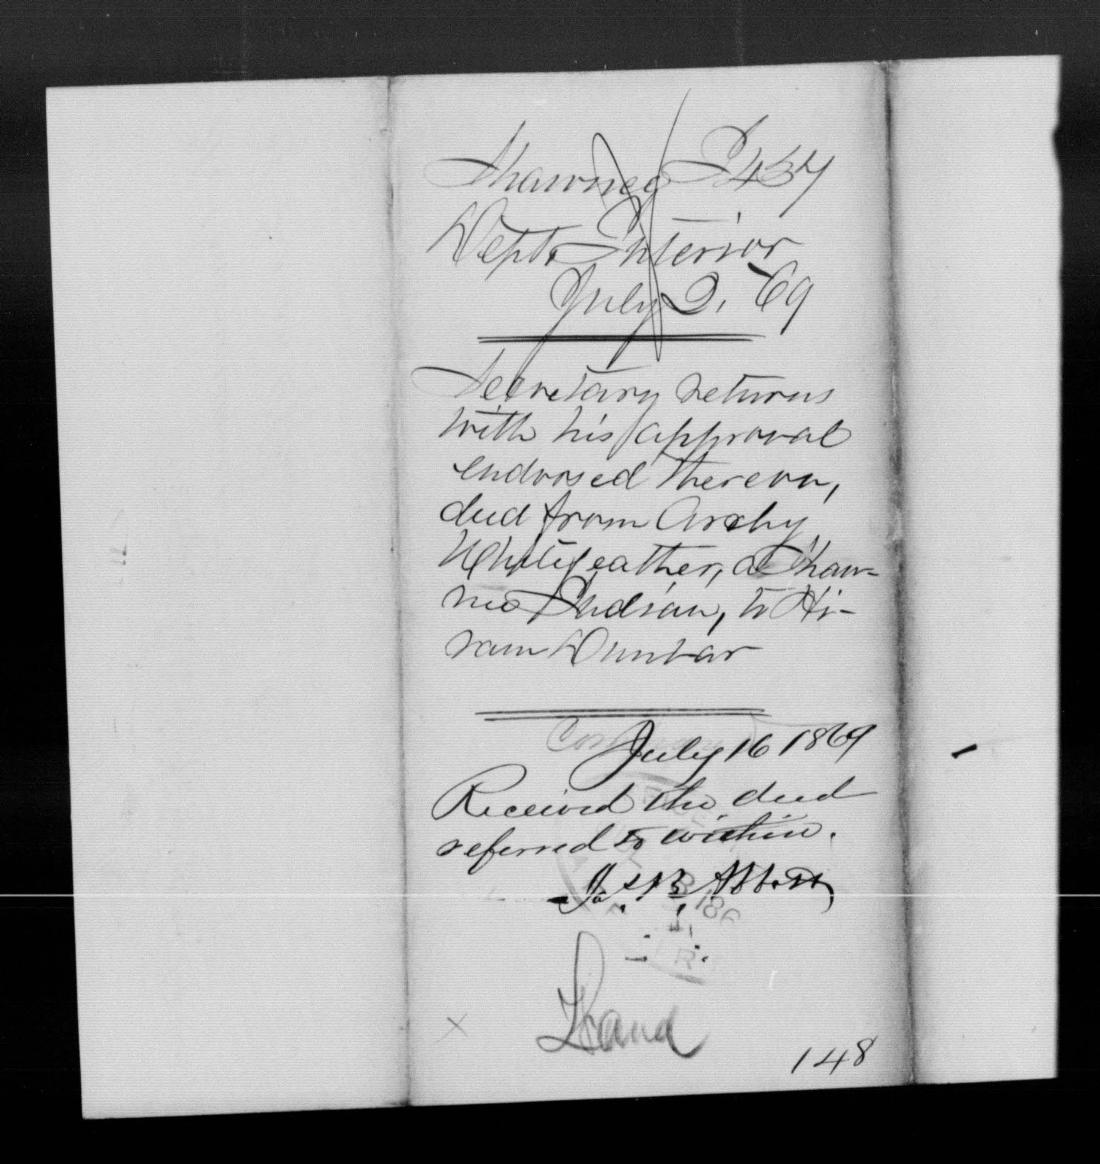 Shawnee I 457
Dept. Interior
July 2, '69
Secretary returns
with his approval
endorsed thereon,
deed from Archy
Whitefeather, a Shaw-
nee Indian, to Hi-
ram Dunbar
July 16 1869
Received the deed
referred to within.
Jas B Abbott
Land
148